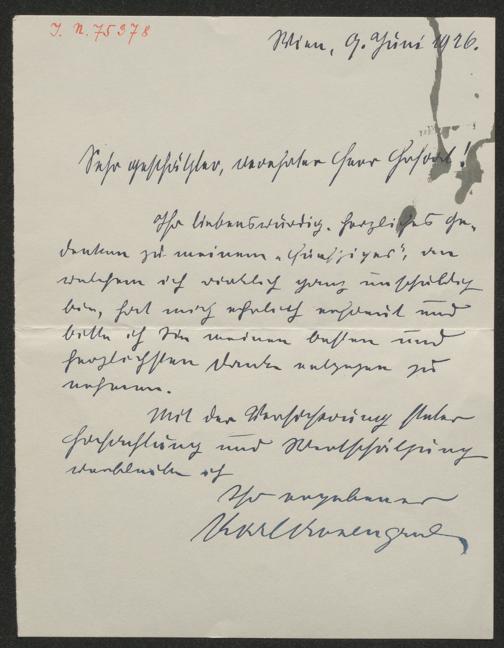 I. N. 75378
Wien, 9. Juni 1926.
Sehr geschätzter, verehrter Herr Hofrat!
Ihr liebenswürdig-herzliches Ge-
denken zu meinem „Fünfziger“, an
welchem ich wirklich ganz unschuldig
bin, hat mich ehrlich erfreut und
bitte ich Sie meinen besten und
herzlichsten Danke entgegen zu
nehmen.
Mit der Versicherung steter
Hochachtung und Wertschätzung
verbleibe ich
Ihr ergebener
Karl